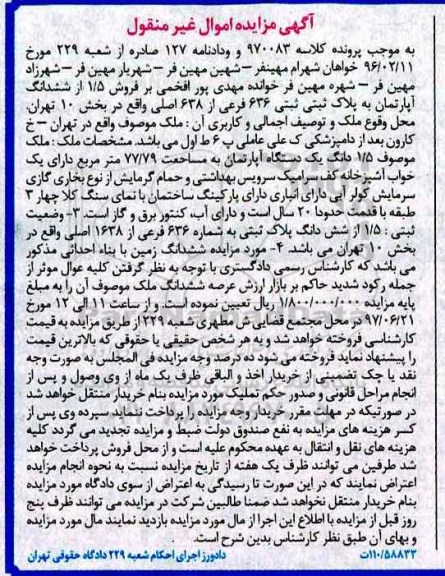 آگهی مزایده اموال غیر منقول
به موجب پرونده کلاسه ۹۷۰۰۸۳ و ودادنامه ۱۲۷ صادره از شعبه ۲۲۹ مورخ
۹۶/۰۲/۱۱ خواهان شهرام مهینفر – شهین مهین فر – شهریار مهین فر – شهرزاد
مهین فر – شهره مهین فر خوانده مهدی پور افخمی بر فروش ۱/۵ از ششدانگ
آپارتمان به پلاک ثبتی ثبتی ۶۳۶ فرعی از ۶۳۸ اصلی واقع در بخش ۱۰ تهران.
محل وقوع ملک و توصیف اجمالی و کاربری آن : ملک موصوف واقع در تهران – خ
کارون بعد از دامپزشکی ک علی عاملی پ ۶ ط اول می باشد. مشخصات ملک : ملک
موصوف ۱/۵ دانگ یک دستگاه آپارتمان به مساحعت ۷۷/۷۹ متر مربع دارای یک
خواب آشپزخانه کف سرامیک سرویس بهداشتی و حمام گرمایش از نوع بخاری گازی
سرمایش کولر آبی دارای انباری دارای پارکینگ ساختمان با نمای سنگ کلا چهار ۳
طبقه با قدمت حدودا ۲۰ سال است و دارای آب، کنتور برق و گاز است. ۳- وضعیت
ثبتی : ۱/۵ از شش دانگ پلاک ثبتی به شماره ۶۳۶ فرعی از ۱۶۳۸ اصلی واقع در
بخش ۱۰ تهران می باشد. ۴- مورد مزایده ششدانگ زمین با بناه احداثی مذکور
می باشد که کارشناس رسمی دادگستری با توجه به نظر گرفتن کلیه عوال موثر از
جمله رکود شدید حاکم بر بازار ارزش عرصه ششدانگ ملک موصوف آن را به مبلغ
پایه مزایده ۱/۸۰۰/۰۰۰/۰۰۰ ریال تعیین نموده است. و از ساعت ۱۱ الی ۱۲ مورخ
۹۷/۰۶/۲۱ در محل مجتمع قضایی ش مطهری شعبه ۲۲۹ از طریق مزایده به قیمت
کارشناسی فروخته خواهد شد و به هر شخص حقیقی یا حقوقی که بالاترین قیمت
را پیشنهاد نماید فروخته می شود ده درصد وجه مزایده فی المجلس به صورت وجه
نقد یا چک تضمینی از خریدار اخذ و الباقی ظرف یک ماه از وی وصول و پس از
انجام مراحل قانونی و صدور حکم تملیک مورد مزایده بنام خریدار منتقل خواهد شد
در صورتیکه در مهلت مقرر خریدار وجه مزایده را پرداخت ننماید سپرده وی پس از
کسر هزینه های مزایده به نفع صندوق دولت ضبط و مزایده تجدید می گردد کلیه
هزینه های نقل و انتقال به عهده محکوم علیه است و از محل فروش پرداخت خواهد
شد طرفین می توانند ظرف یک هفته از تاریخ مزایده نسبت به نحوه انجام مزایده
اعتراض نمایند که در این صورت تا رسیدگی به اعتراض از سوی دادگاه مورد مزایده
بنام خریدار منتقل نخواهد شد ضمنا طالبین شرکت در مزایده می توانند ظرف پنج
روز قبل از مزایده با اطلاع این اجرا از مال مورد مزایده بازدید نمایند مال مورد مزایده
و بهای آن طبق نظر کارشناس بدین شرح است.
۱۱۰/۵۸۸۳۳ت دادورز اجرای احکام شعبه ۲۲۹ دادگاه حقوقی تهران